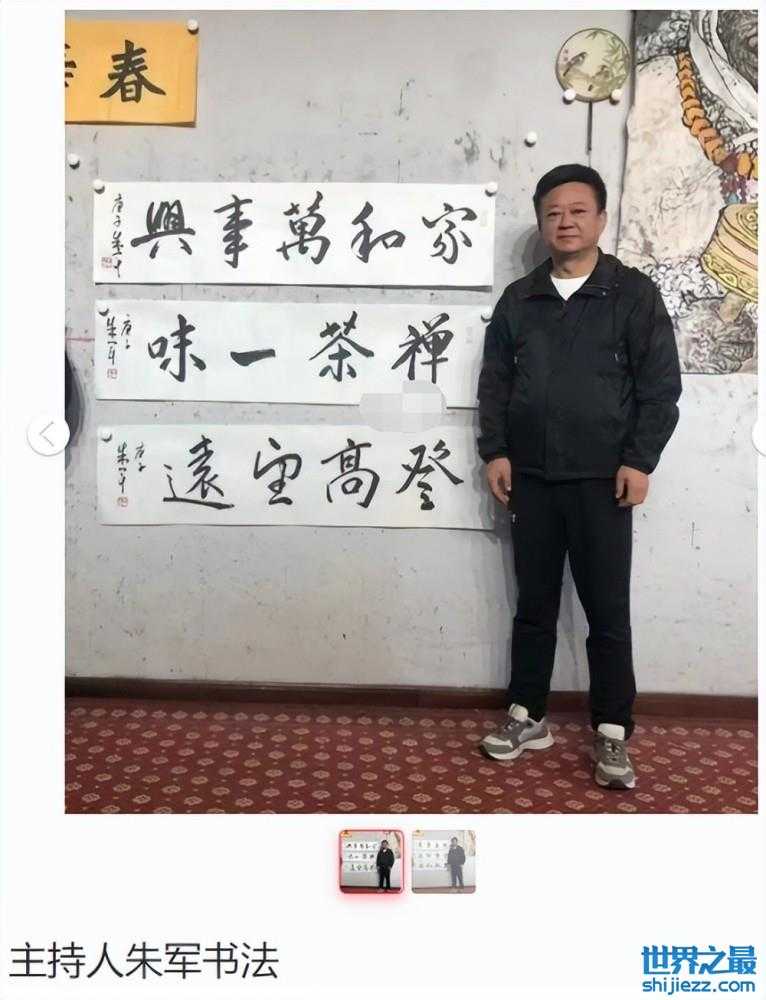 春
家和萬事興
庚子朱军
禅茶一味
庚子
朱军
登高望遠
庚子
朱军
主持人朱军书法
世界之最
shijiezz.com